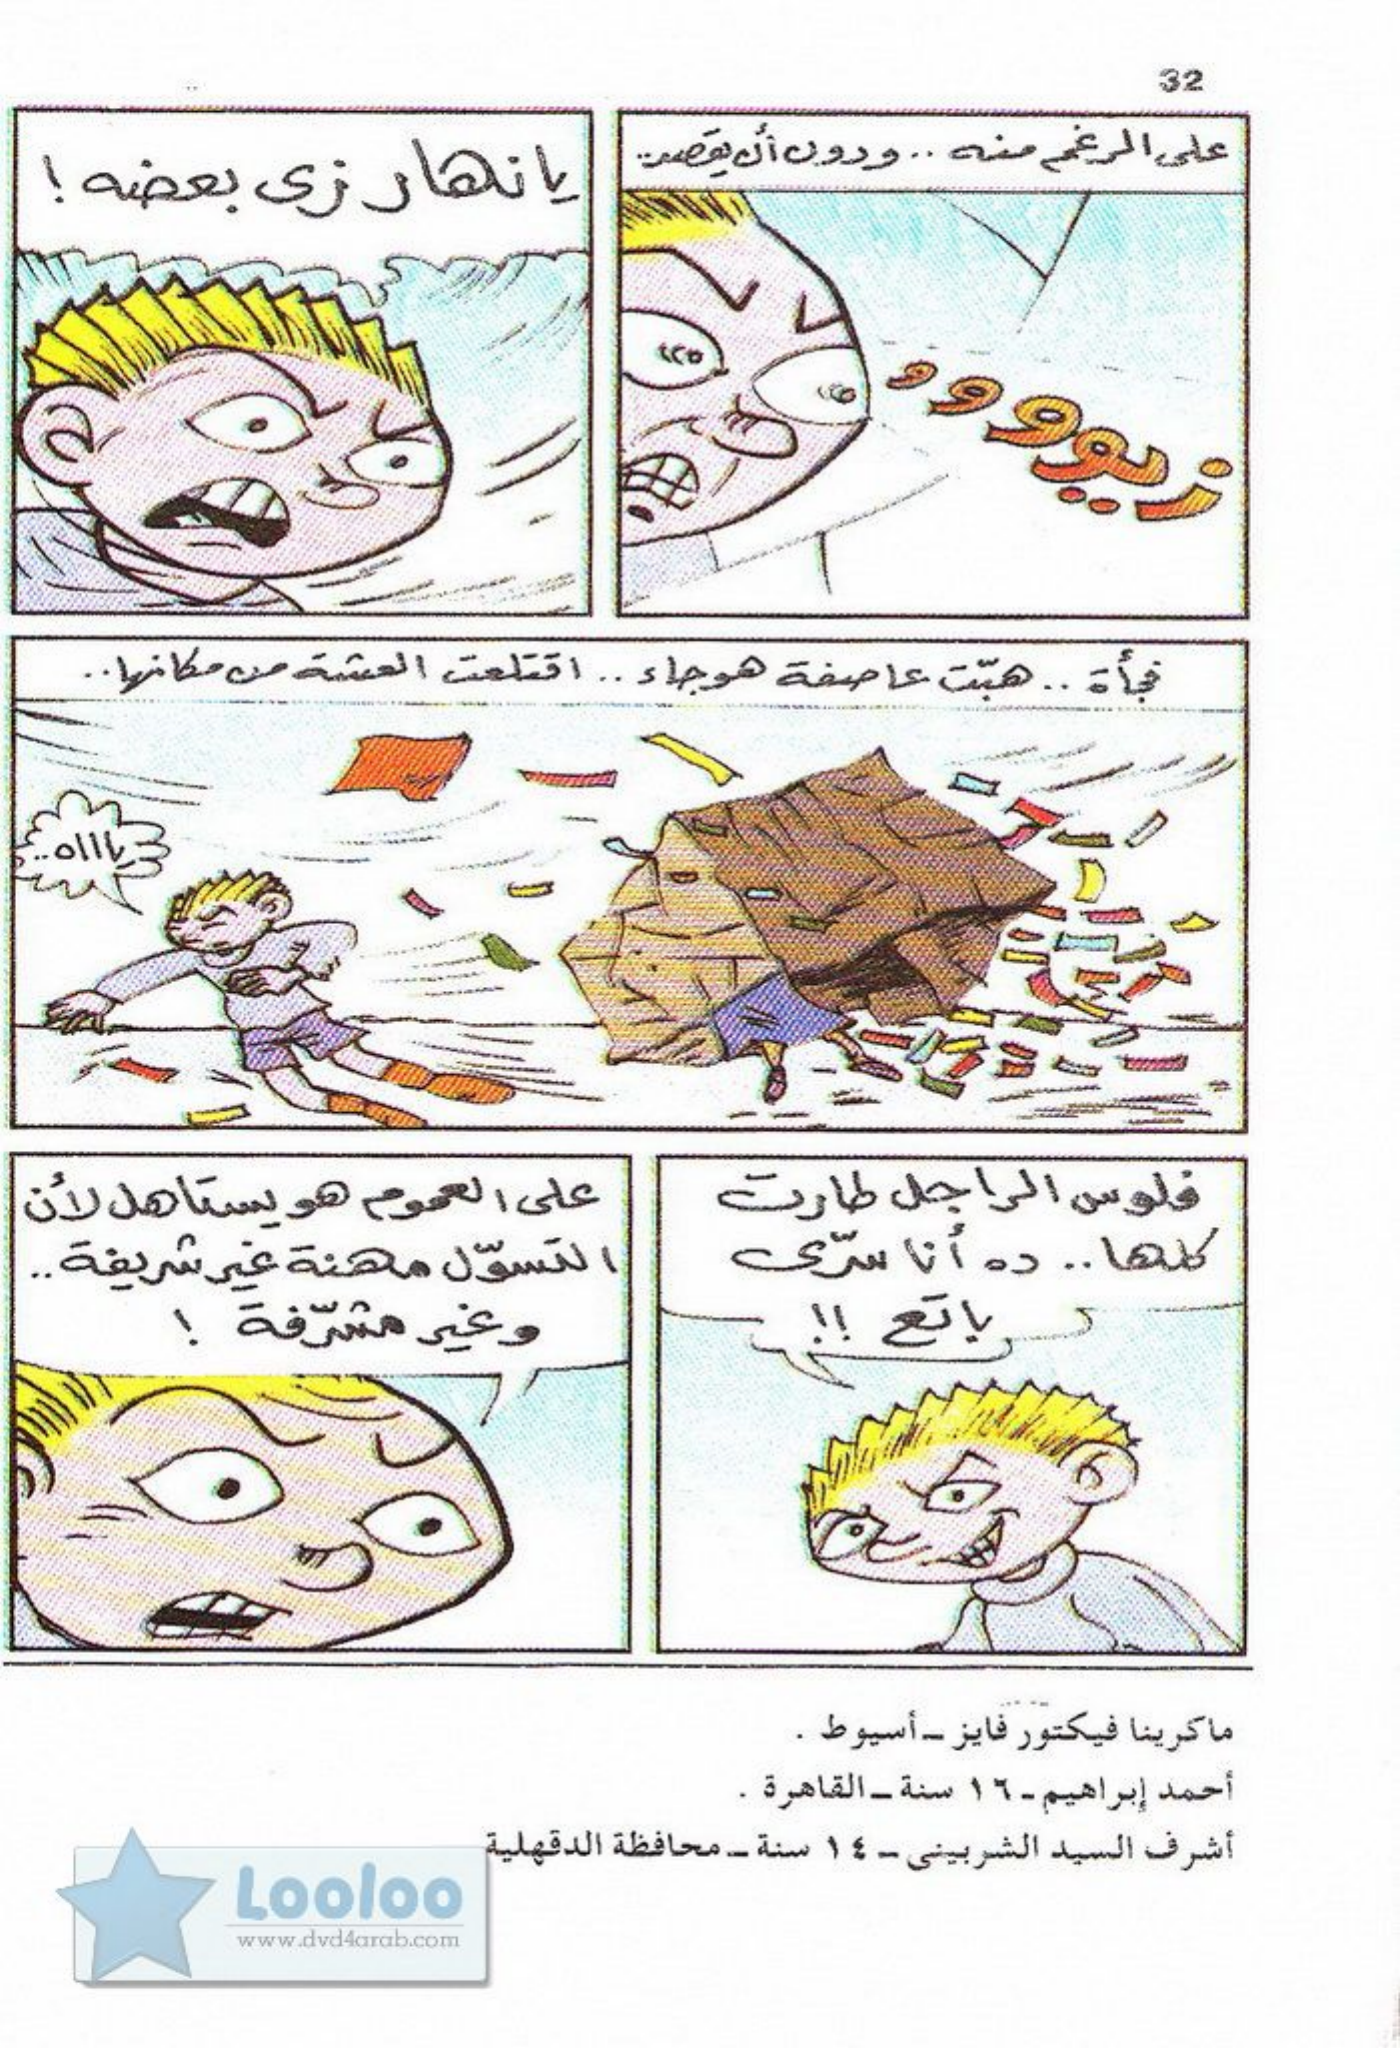 32
على الرغم منه .. ودون أن يقصد..
زيوووو
يا نهار زى بعضه !
فجأة .. هبّت عاصفة هوجاء .. اقتلعت العشة من مكانها..
ياااه..
فلوس الراجل طارت
كلها .. ده أنا سرّى
باتع !!
على العموم هو يستاهل لأن
التسوّل مهنة غير شريفة ..
وغير مشرّفة !
ماكرينا فيكتور فايز ــ أسيوط .
أحمد إبراهيم ــ ١٦ سنة ــ القاهرة .
أشرف السيد الشربينى ــ ١٤ سنة ــ محافظة الدقهلية
Looloo
www.dvd4arab.com